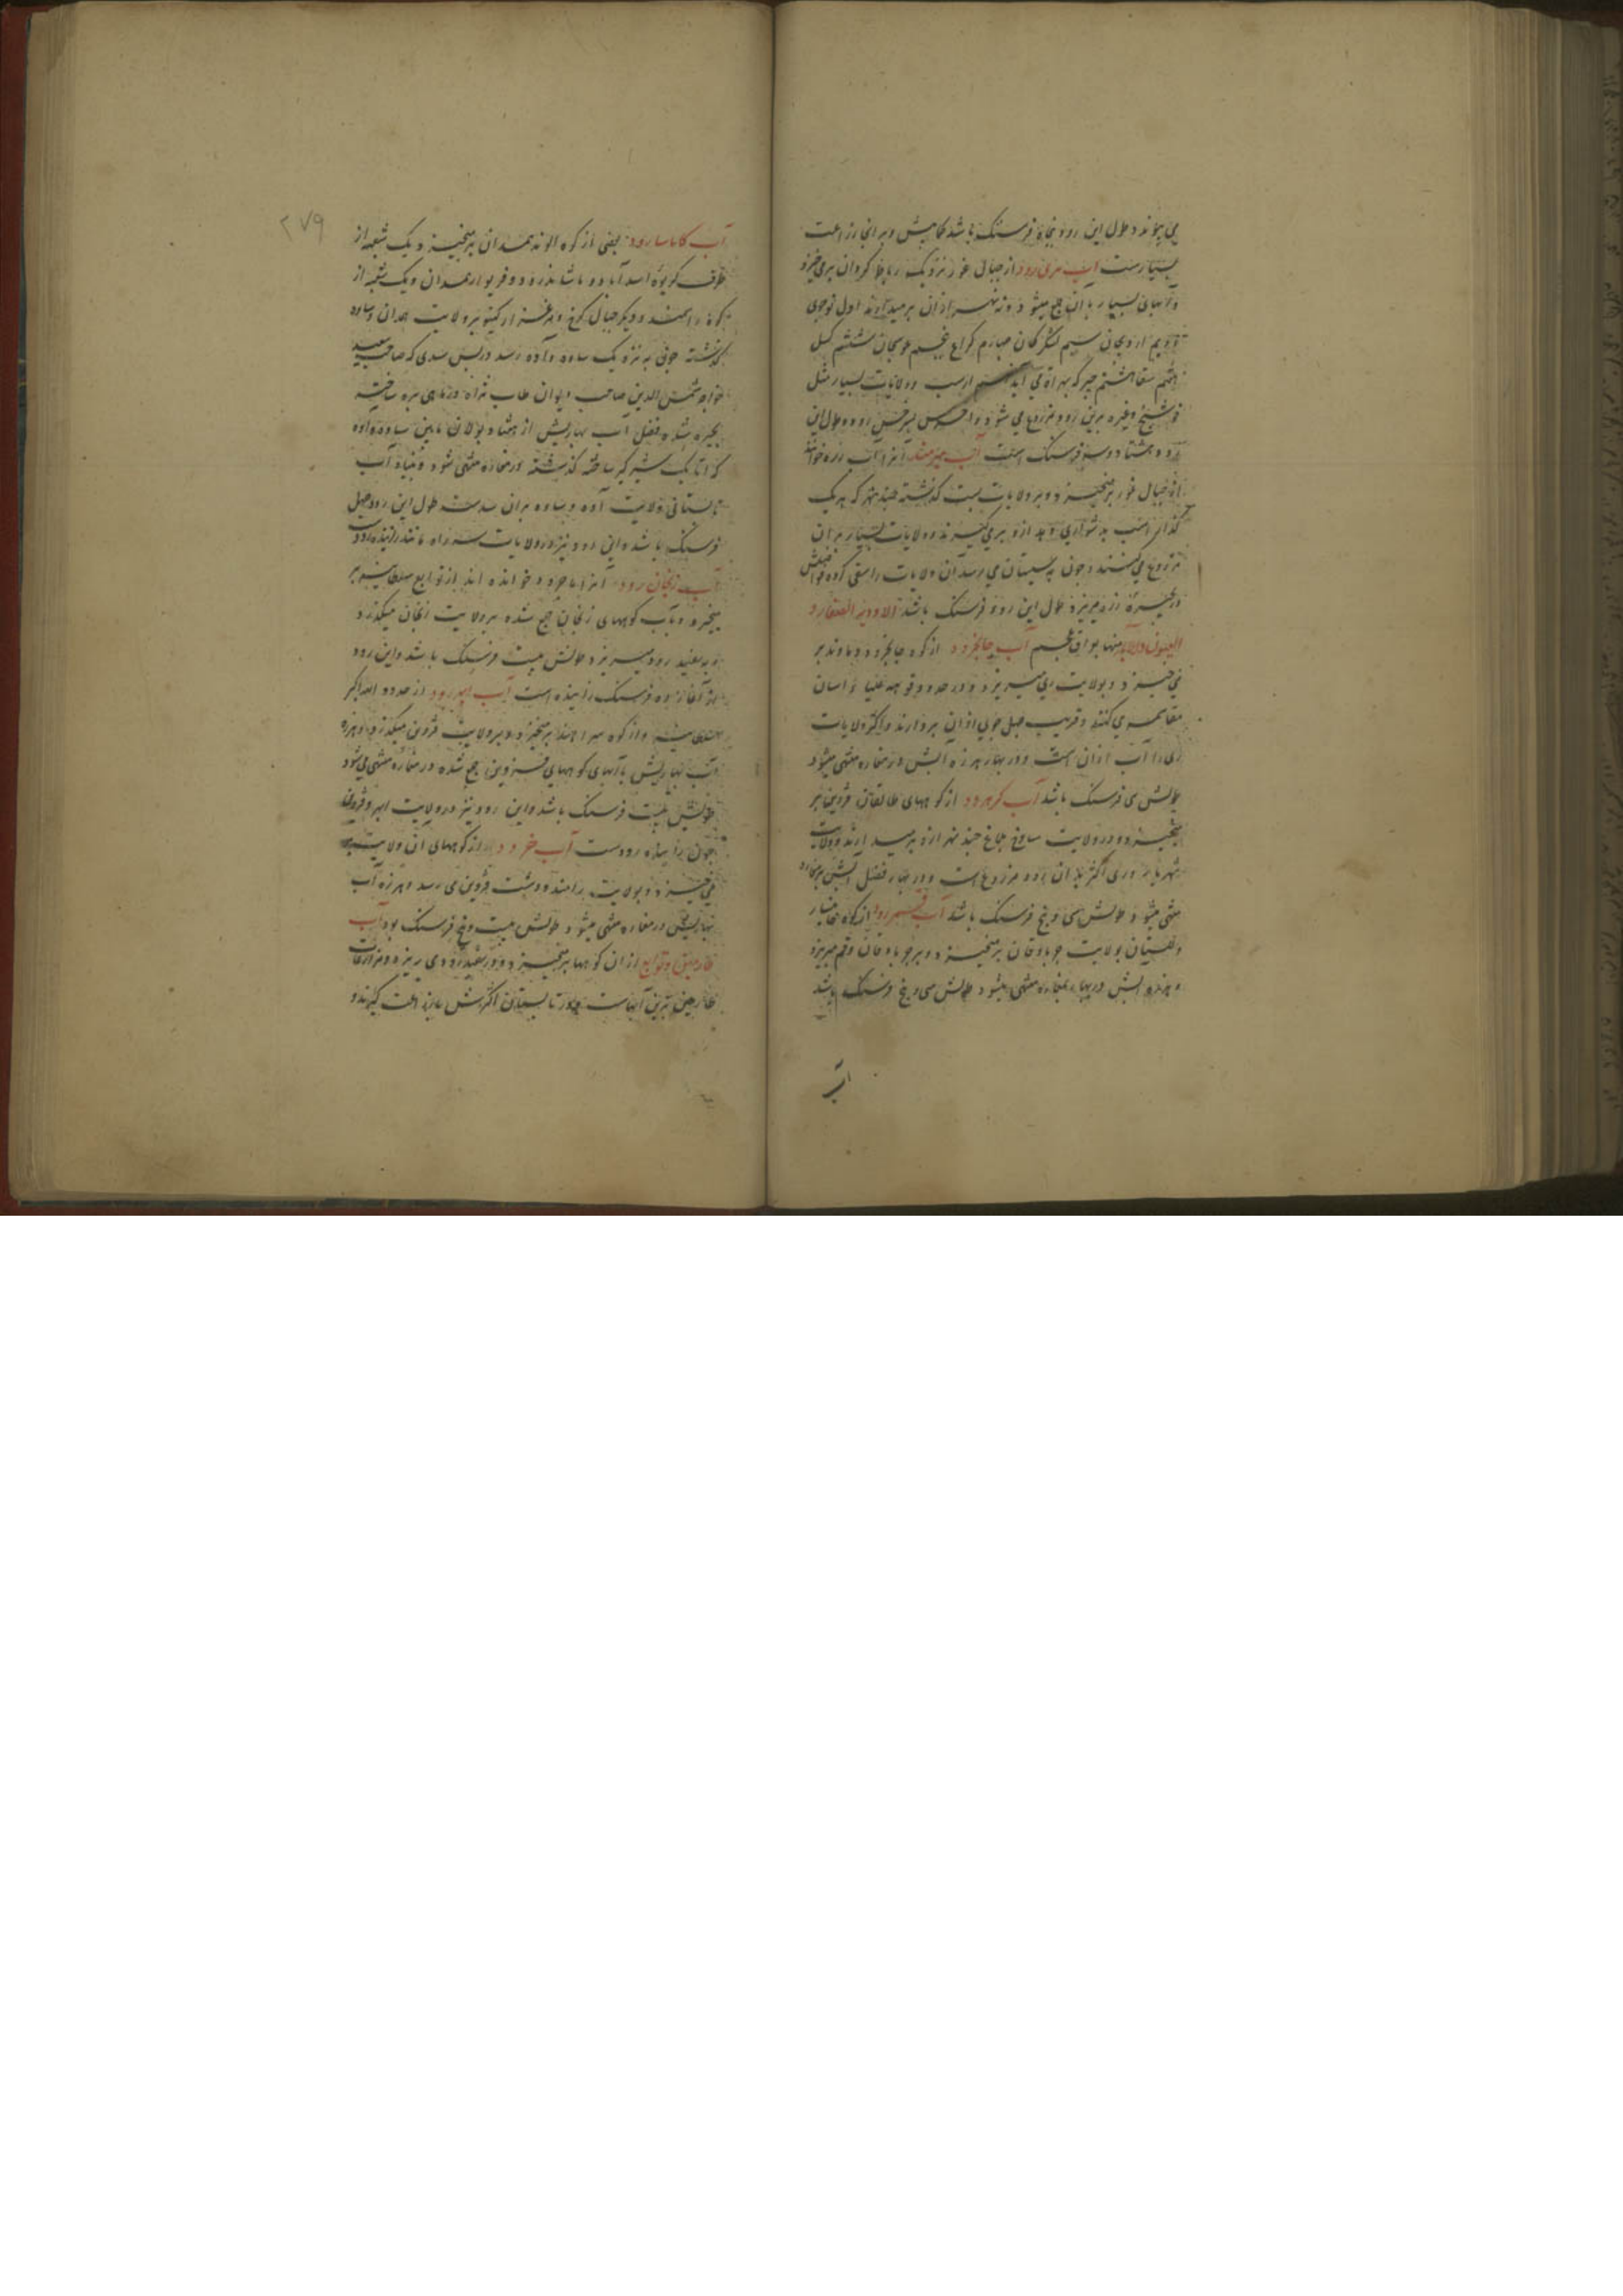 می پیوندد و طول این رود پنجاه فرسنگ باشد کمابیش و بر آن زراعت
بسیارست آب هری رود از جبال غور نزدیک رباط کروان برمی خیزد
و آبهای بسیار با آن جمع میشود و نه نهر ازان برمیدارند اول نوجوی
دویم اردیجان سیم لشکرکان چهارم کراغ پنجم غوسجان ششم کسل
هفتم سقا هشتم خیر که بهراة می آید و ولایات بسیار مثل
فوشنج و غیره برین رود مزروع می شود و سرخس رود و طول این
رود هشتاد و سه فرسنگ است آب هیرمند آنرا آب زره خوانند
از جبال غور برمیخیزد و بر ولایات بست گذشته چند نهر که هریک
گذار اسب بدشواری دهد ازو برمی گیرند و ولایات بسیار بر آن
مزروع می کنند و چون بسیستان می رسد آن ولایات را سقی کرده
در بحیره زره میریزد طول این رود فرسنگ باشد الاودیه الصغار و
العیون والآبار منها بعراق عجم آب جاجرود از کوه جاجرود دماوند بر
می خیزد و بولایت ری میریزد و در حدود قوهه علیا
مقاسمه می کنند و قریب چهل جوی ازان بردارند و اکثر ولایات
ری را آب ازان است و در بهار هرزه آبش در مفازه منتهی میشود
طولش سی فرسنگ باشد آب کرهرود از کوههای طالقان قزوین بر
میخیزد و در ولایت ساوخ بلاغ چند نهر ازو برمیدارند و ولایات
شهریار و ری اکثر بر آن رود مزروع است و در بهار فضل آبش
منتهی میشود طولش سی و پنج فرسنگ باشد آب قم رود از کوه خانیسار
و لغستان بولایت جرباذقان برمیخیزد و بر جرباذقان و قم میریزد
و هرزه آبش در بهار بمفازه منتهی میشود طولش سی و پنج فرسنگ باشد
آب
۲۷۹
آب کاماسا رود بعضی از کوه الوند همدان برمیخیزد و یک شعبه از
طرف کریوه اسدآباد و ماشانرود و فریوار همدان و یک شعبه از
کوه راسمند و دیگر جبال کرخ و بر ولایت همدان و ساوه
گذشته چون به نزدیک ساوه و آوه رسد در پس سدی که صاحب سعید
خواجه شمس الدین صاحب دیوان طاب ثراه ساخته
بحیره شده و فضل آب بهاریش از مابین ساوه و آوه
گذشته در مفازه منتهی شود و بنیاد آب
تابستانی ولایت آوه و ساوه بران سدست طول این رود چهل
فرسنگ باشد و این رود نیز در ولایات سر راه مانند زاینده رودست
آب زنجان رود آنرا ماجرود خوانده اند از توابع سلطانیه بر
میخیزد و با آب کوههای زنجان جمع شده بر ولایت زنجان میگذرد
و به سفید رود میریزد طولش بیست فرسنگ باشد و این رود
زاینده است آب ابهر رود از حدود
و از کوه برمیخیزد و بر ولایت قزوین میگذرد و هرزه
آب بهاریش با آبهای کوههای قزوین جمع شده در مفازه منتهی می شود
طولش بیست فرسنگ باشد و این رود نیز در ولایت ابهر و قزوین
چون زاینده رودست آب خررود از کوههای آن ولایت بر
می خیزد و بولایت رامند و دشت قزوین می رسد و هرزه آب
بهاریش در مفازه منتهی میشود طولش بیست و پنج فرسنگ بود آب
طارمین و توابع از آن کوهها برمیخیزد و در سفیدرود می ریزد و
طارمین برین آبهاست و در تابستان اکثرش بازراعت گیرند و